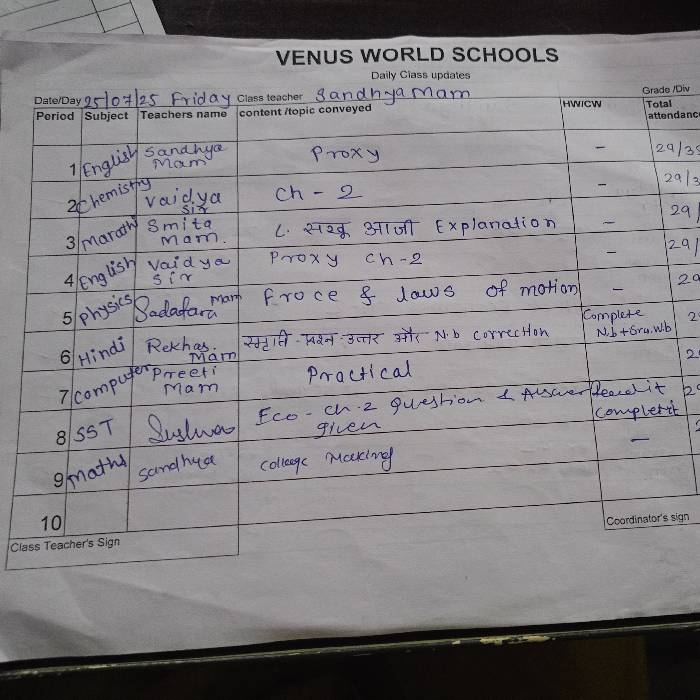 VENUS WORLD SCHOOLS
Daily Class updates
Date/Day 25/07/25 Friday Class teacher Sandhya Mam Grade /Div
Period Subject Teachers name content /topic conveyed HW/CW Total attendanc
1 English Sandhya Mam Proxy - 29/35
2 Chemistry Vaidya Sir Ch - 2 - 29/3
3 Marathi Smita Mam. L. सखू आजी Explanation - 29/
4 English Vaidya Sir Proxy Ch-2 - 29/
5 Physics Sadafara Mam Froce & laws of motion - 29
6 Hindi Rekha Mam स्मृति प्रश्न उत्तर और N.b correction Complete N.b+Gra.w.b 2
7 Computer Preeti Mam Practical 2
8 SST Eco - ch-2 Question & Aksuer given Read it complet it 29
9 Maths Sandhya College Making - 2
10
Class Teacher's Sign Coordinator's sign